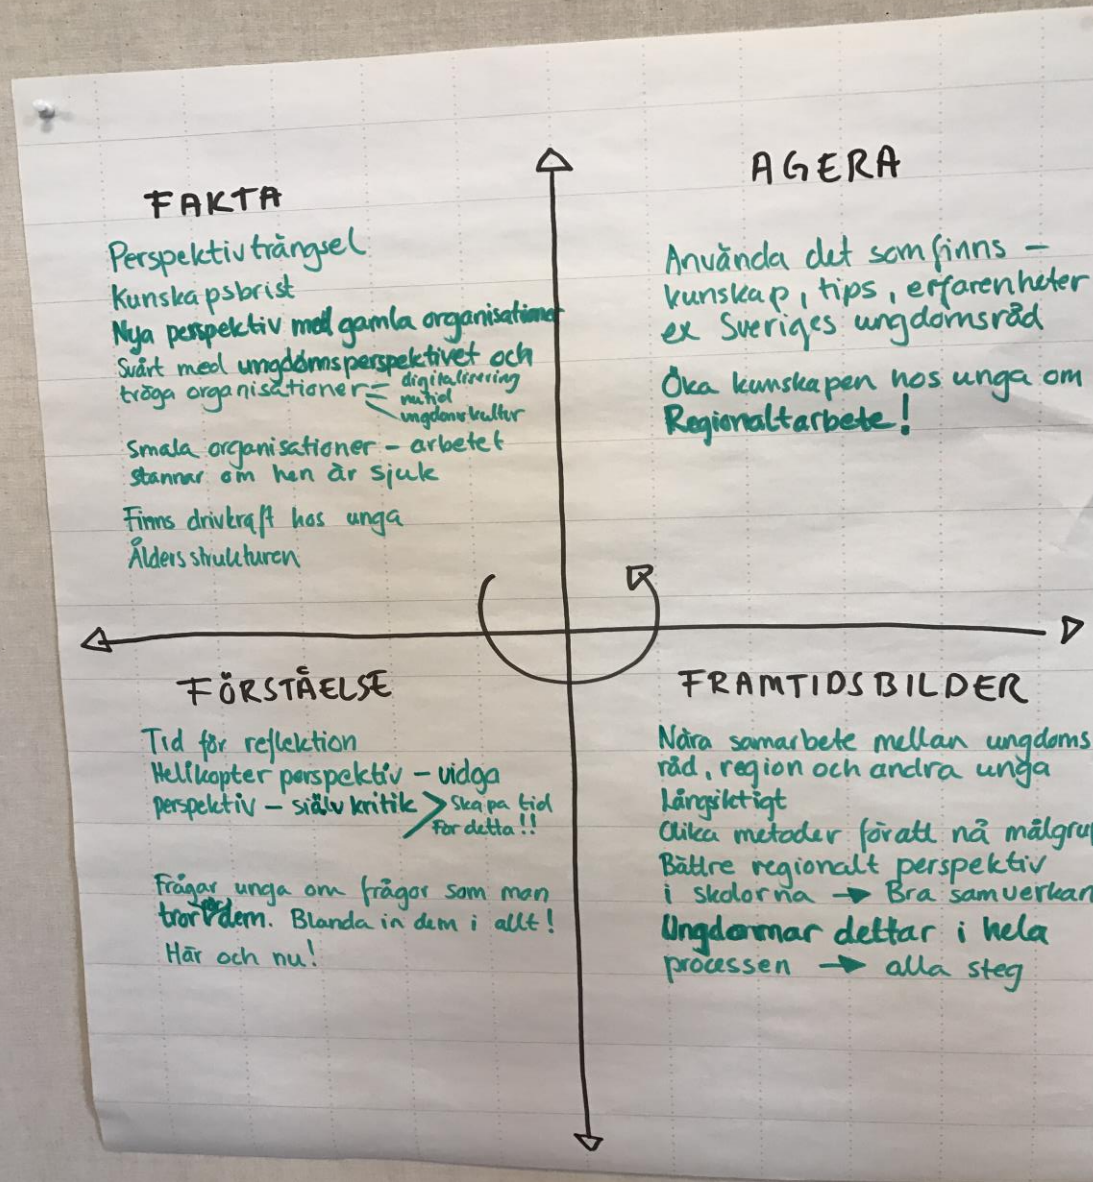 FAKTA
Perspektivträngsel
Kunskapsbrist
Nya perspektiv med gamla organisationer
Svårt med ungdomsperspektivet och
tröga organisationer
digitalisering
nutid
ungdomskultur
Smala organisationer – arbetet
stannar om hen är sjuk
Finns drivkraft hos unga
Åldersstrukturen
AGERA
Använda det som finns –
kunskap, tips, erfarenheter
ex Sveriges ungdomsråd
Öka kunskapen hos unga om
Regionaltarbete!
FÖRSTÅELSE
Tid för reflektion
Helikopter perspektiv – vidga
perspektiv – själv kritik
Skapa tid
För detta!!
Frågar unga om frågor som man
tror dem. Blanda in dem i allt!
Här och nu!
FRAMTIDSBILDER
Nära samarbete mellan ungdoms
råd, region och andra unga
Långsiktigt
Olika metoder för att nå målgrup
Bättre regionalt perspektiv
i skolorna → Bra samverkan
Ungdommar deltar i hela
processen → alla steg